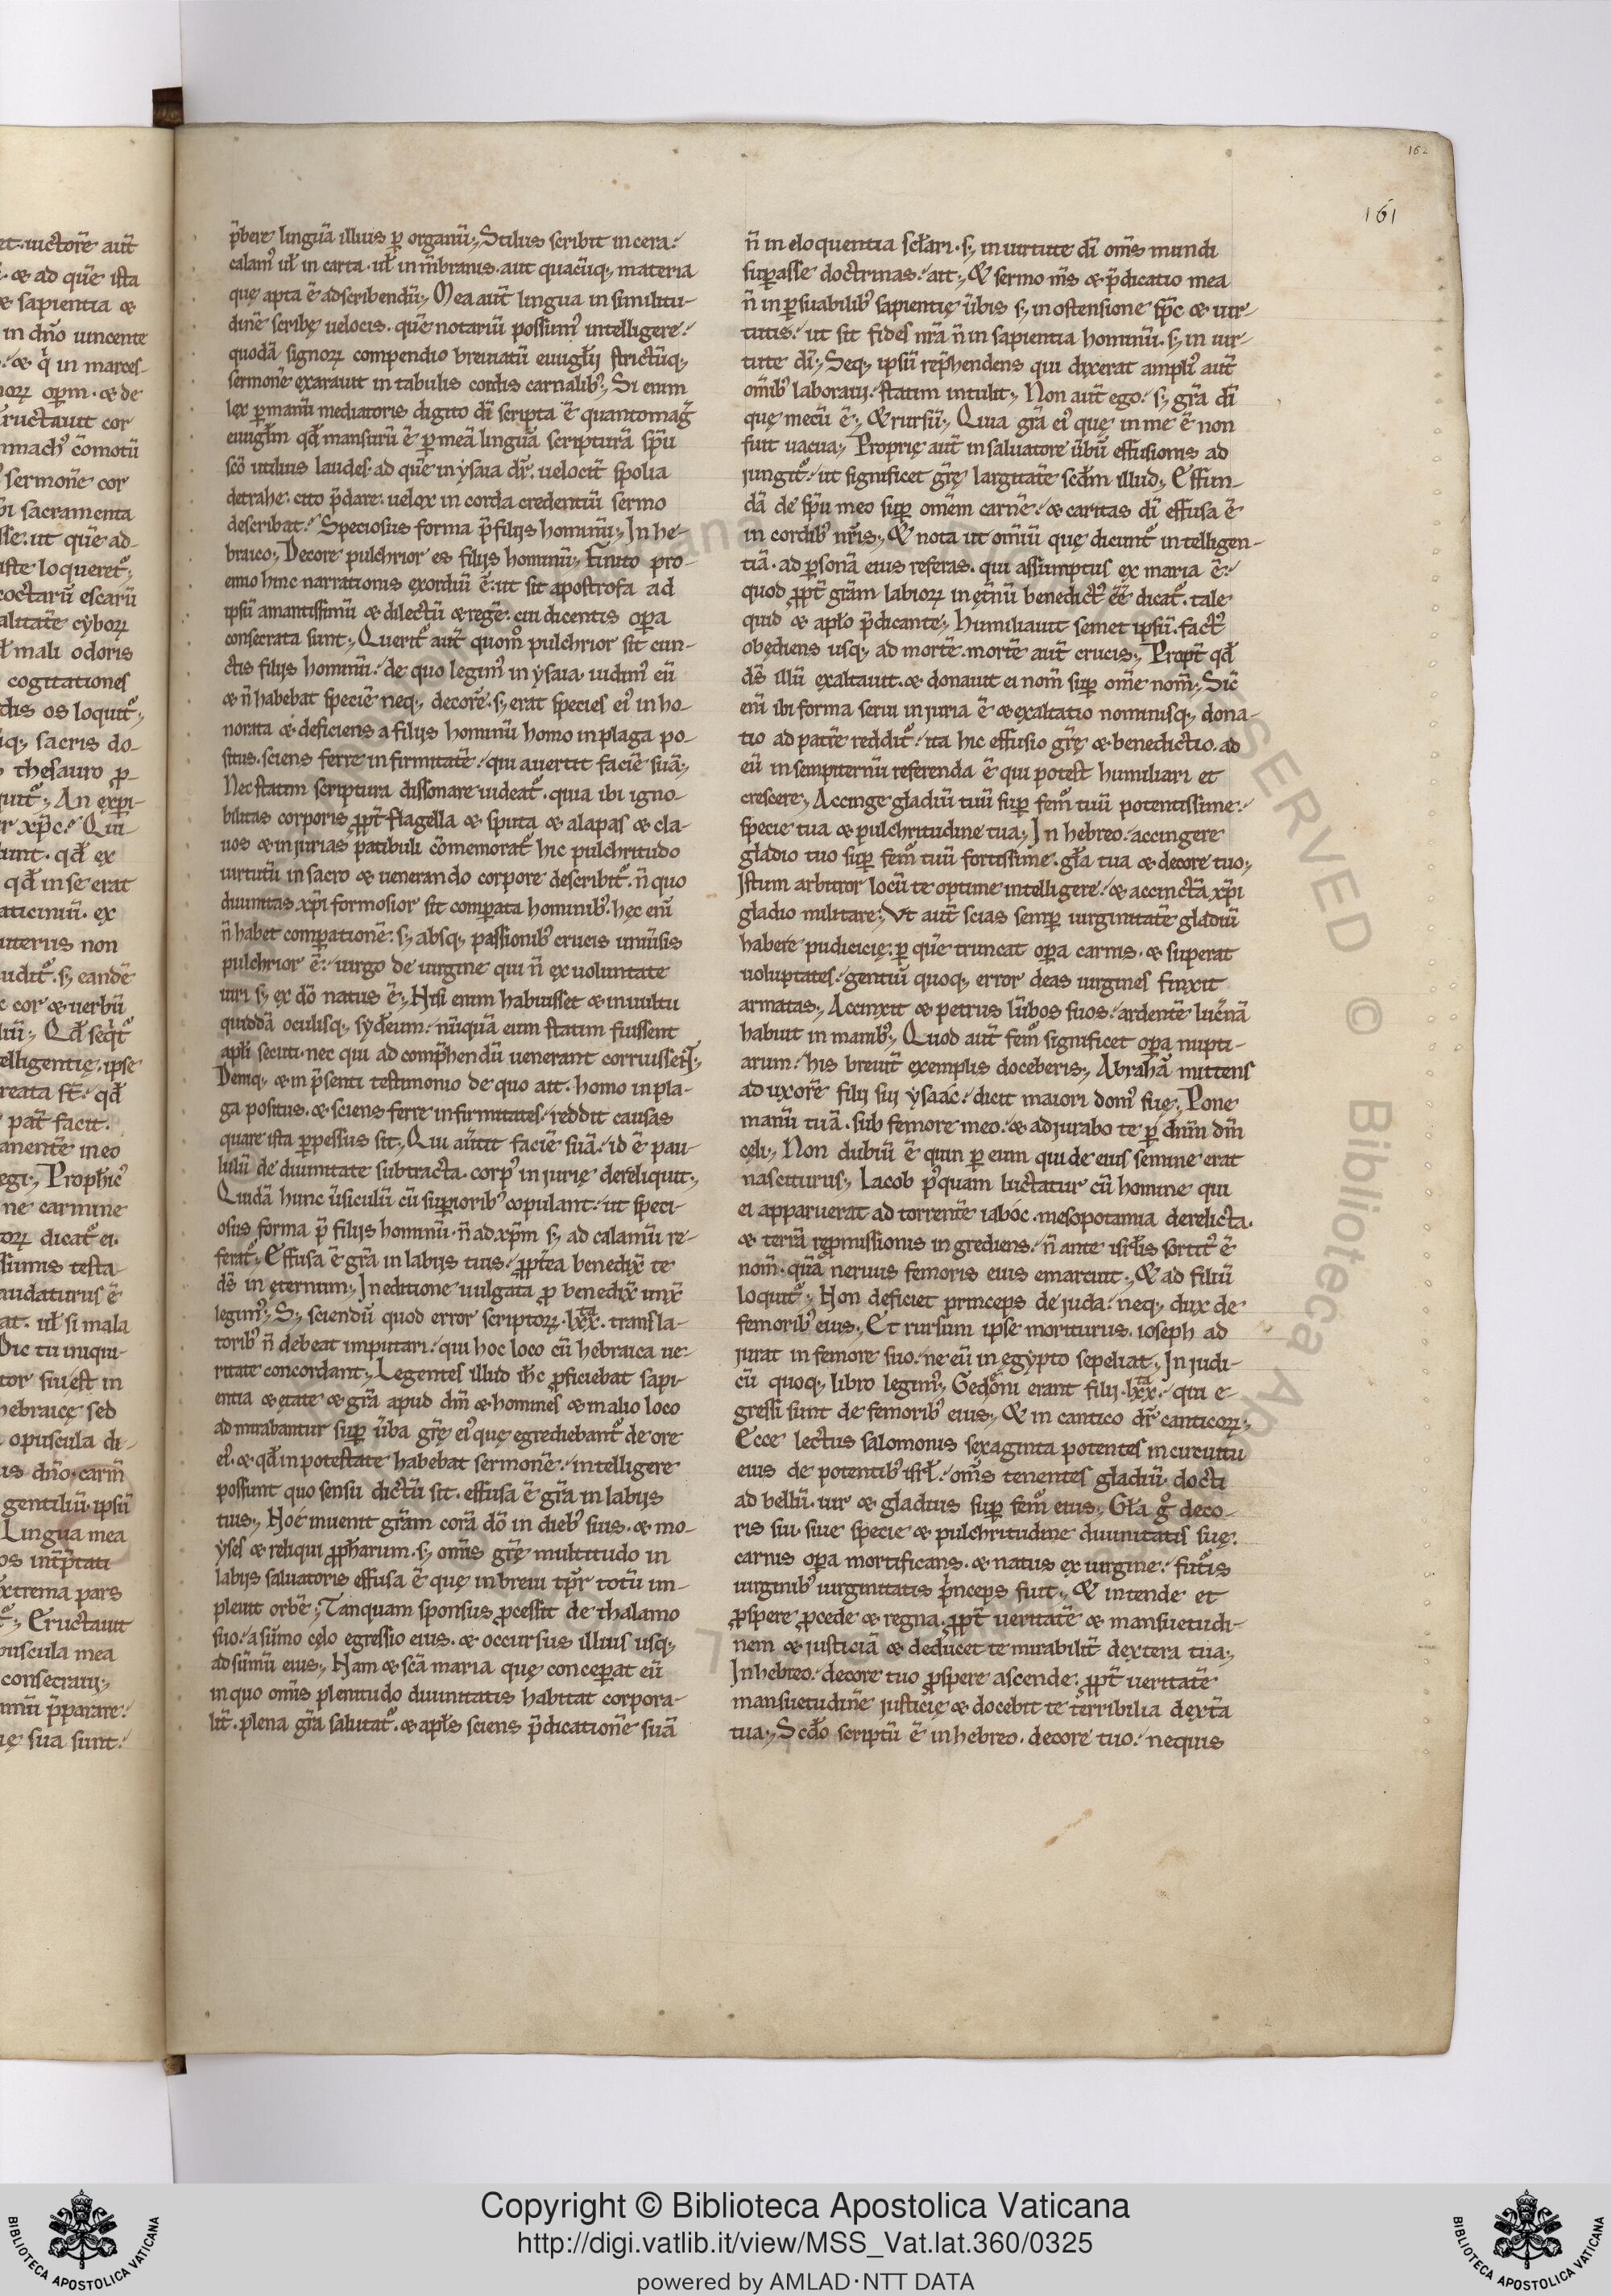 162
161
p̃bere linguã illius ꝑ organũ;, Stilus scribit in cera:
calamꝰ ul̃ in carta · ul̃ in m̃branis · aut quacũq;, materia
quę apta ẽ ad scribendũ;, Mea aut̃ lingua in similitu-
dinẽ scribę uelocis · quẽ notariũ possumꝰ intelligere:
quodã signoꝝ compendio breuiatũ euuglĩj strictũq;,
sermonẽ exarauit in tabulis cordis carnalibꝰ;, Si enim
lex ꝑ manũ mediatoris digito dĩ scripta ẽ quantomag̃
euuglĩm qđ mansurũ ẽ ꝑ meã linguã scripturã sp̃u
sc̃o utilius laudes · ad quẽ in ysaia dr̃: uelocit̃ spolia
detrahe: cito p̃dare: uelox in corda credentiũ sermo
describat: Speciosus forma p̃ filijs hominũ;, In he-
braico;, Decore pulchrior es filijs hominũ;, Finito pro-
emio hinc narrationis exordiũ ẽ: ut sit apostrofa ad
ipsũ amantissimũ & dilectũ & regẽ: cui dicentis oꝑa
consecrata sunt;, Querit᷑ aut̃ quom̊ pulchrior sit cun-
ctis filijs hominũ: de quo legimꝰ in ysaia · uidimꝰ eũ
& ñ habebat speciẽ neq;, decorẽ: s;, erat species eiꝰ in ho-
norata & deficiens a filijs hominũ homo in plaga po-
situs · sciens ferre infirmitatẽ: qui auertit faciẽ suã;,
Nec statim scriptura dissonare uideat᷑ · quia ibi igno-
bilitas corporis ꝓpt̃ flagella & sputa & alapas & cla-
uos & injurias patibuli cõmemorat᷑ hic pulchritudo
uirtutũ in sacro & uenerando corpore describit᷑ · ñ quo
diuinitas xp̃i formosior sit comꝑata hominibꝰ: hęc enĩ
ñ habet comꝑationẽ: s;, absq;, passionibꝰ crucis uniũsis
pulchrior ẽ: uirgo de uirgine qui ñ ex uoluntate
uiri s;, ex dõ natus ẽ;, Nisi enim habuisset & in uultu
quiddã oculisq;, sydeum: nũquã eum statim fuissent
apl̃i secuti · nec qui ad comp̃hendũ uenerant corruissent;,
Deniq;, & in p̃senti testimonio de quo ait · homo in pla-
ga positus · & sciens ferre infirmitates: reddit causas
quare ista ꝑpessus sit;, Qui aũtit faciẽ suã: id ẽ pau-
lulũ de diuinitate subtracta · corpꝰ injurię dereliquit;,
Quidã hunc ũsiculũ cũ suꝑioribꝰ copulant: ut speci-
osus forma p̃ filijs hominũ · ñ ad xp̃m s;, ad calamũ re-
ferat᷑;, Effusa ẽ gr̃a in labijs tuis: ꝓpt̃ea benedix̃ te
dš in ęternum;, In editione uulgata ꝓ benedix̃ unx̃
legimꝰ;, S;, sciendũ quod error scriptoꝝ · lxx̃ · transla-
toribꝰ ñ debeat imputari: qui hoc loco cũ hebraica ue-
ritate concordant;, Legentes illud ih̃c ꝓficiebat sapi-
entia & ętate & gr̃a apud dm̃ & homines & in alio loco
ad mirabantur suꝑ ũba gr̃ę eiꝰ quę egrediebant᷑ de ore
eiꝰ · & qđ in potestate habebat sermonẽ: intelligere
possunt quo sensu dictũ sit · effusa ẽ gr̃a in labijs
tuis;, Noé inuenit gr̃am corã dõ in diebꝰ suis · & mo-
yses & reliqui ꝓph̃arum · s;, om̃is gr̃ę multitudo in
labijs saluatoris effusa ẽ quę in breui tp̃r totũ im-
pleuit orbẽ;, Tanquam sponsus ꝓcessit de thalamo
suo: a sũmo cęlo egressio eius · & occursus illius usq;,
ad sũmũ eius;, Nam & sc̃a maria quę conceꝑat eũ
in quo om̃is plenitudo diuinitatis habitat corpora-
lit̃ · plena gr̃a salutat᷑ · & apl̃s sciens p̃dicationẽ suã
ñ in eloquentia scl̃ari · s;, in uirtute dĩ om̃s mundi
suꝑasse doctrinas: ait;, & sermo m̃s & p̃dicatio mea
ñ in ꝑsuabilibꝰ sapientię ũbis s;, in ostensione sp̃c & uir-
tutis: ut sit fides nr̃a ñ in sapientia hominũ · s;, in uir-
tute dĩ;, Seq;, ipsũ rep̃hendens qui dixerat ampliꝰ aut̃
om̃ibꝰ laboraui: statim intulit;, Non aut̃ ego: s;, gr̃a dĩ
quę mecũ ẽ;, & rursũ;, Quia gr̃a eiꝰ quę in me ẽ non
fuit uacua;, Proprię aut̃ in saluatore ũbũ effusionis ad
jungit᷑: ut significet gr̃ę largitatẽ scđm illud;, Effun-
dã de sp̃u meo suꝑ om̃em carnẽ: & caritas dĩ effusa ẽ
in cordibꝰ nr̃is;, & nota ut om̃iũ quę dicunt᷑ intelligen-
tiã · ad ꝑsonã eius referas · qui assumptus ex maria ẽ:
quod ꝓpt̃ gr̃am labioꝝ in ęt̃nũ benedictꝰ ẽẽ dicat᷑ · tale
quid & apl̃o p̃dicante;, Humiliauit semet ipsũ · factꝰ
obediens usq;, ad mortẽ · mortẽ aut̃ crucis;, Propt̃ qđ
dš illũ exaltauit · & donauit ei nom̃ suꝑ om̃e nom̃;, Sic̃
enĩ ibi forma serui injuria ẽ & exaltatio nominisq;, dona-
tio ad patrẽ reddit᷑: ita hic effusio gr̃ę & benedictio · ad
eũ in sempiternũ referenda ẽ qui potest humiliari et
crescere;, Accinge gladiũ tuũ suꝑ fem᷑ tuũ potentissime:
specie tua & pulchritudine tua;, In hebreo: accingere
gladio tuo suꝑ fem᷑ tuũ fortissime · gl̃a tua & decore tuo;,
Istum arbitror locũ te optime intelligere: & accinctã xp̃i
gladio militare;, Vt aut̃ scias semꝑ uirginitatẽ gladiũ
habere pudicicię: ꝑ quẽ truncat oꝑa carnis · & superat
uoluptates: gentiũ quoq;, error deas uirgines finxit
armatas;, Accinxit & petrus lũbos suos: ardentẽ luc̃nã
habuit in manibꝰ;, Quod aut̃ fem᷑ significet oꝑa nupti-
arum: his breuit̃ exemplis doceberis;, Abrahã mittens
ad uxorẽ filij sui ysaác: dicit maiori domꝰ suę;, Pone
manũ tuã · sub femore meo: & adjurabo te ꝑ dnm̃ dm̃
cęli;, Non dubiũ ẽ quin ꝑ eum qui de eius semine erat
nasciturus;, Iacob pꝰquam luctatur cũ homine qui
ei apparuerat ad torrentẽ iabóc · mesopotamia derelicta ·
& terrã reꝓmissionis ingrediens: ñ ante isrl̃is sortitꝰ ẽ
nom̃ · quã neruus femoris eius emarcuit;, & ad filiũ
loquit᷑;, Non deficiet princeps de juda: neq;, dux de
femoribꝰ eius;, Et rursum ipse moriturus · ioseph ad
jurat in femore suo: ne eũ in egypto sepeliat;, In judi-
cũ quoq;, libro legimꝰ;, Gedeoni erant filij · lxx̃: qui e-
gressi sunt de femoribꝰ eius;, & in cantico dr̃ canticoꝝ;,
Ecce lectus salomonis sexaginta potentes in circuitu
eius de potentibꝰ isrl̃: om̃s tenentes gladiũ · docti
ad bellũ · uir & gladius suꝑ fem᷑ eius;, Gl̃a g̊ deco-
ris sui · siue specie & pulchritudine diuinitatis suę ·
carnis oꝑa mortificans · & natus ex uirgine: fut᷑is
uirginibꝰ uirginitatis p̃nceps fuit;, & intende et
ꝓspere ꝓcede & regna · ꝓpt̃ ueritatẽ & mansuetudi-
nem & justiciã & deducet te mirabilit̃ dextera tua;,
In hebreo: decore tuo ꝓspere ascende: ꝓpt̃ ueritatẽ
mansuetudinẽ justicię & docebit te terribilia dext̃a
tua;, Scđo scriptũ ẽ in hebreo · decore tuo: nequis
Copyright © Biblioteca Apostolica Vaticana
http://digi.vatlib.it/view/MSS_Vat.lat.360/0325
powered by AMLAD·NTT DATA
BIBLIOTECA APOSTOLICA VATICANA
BIBLIOTECA APOSTOLICA VATICANA